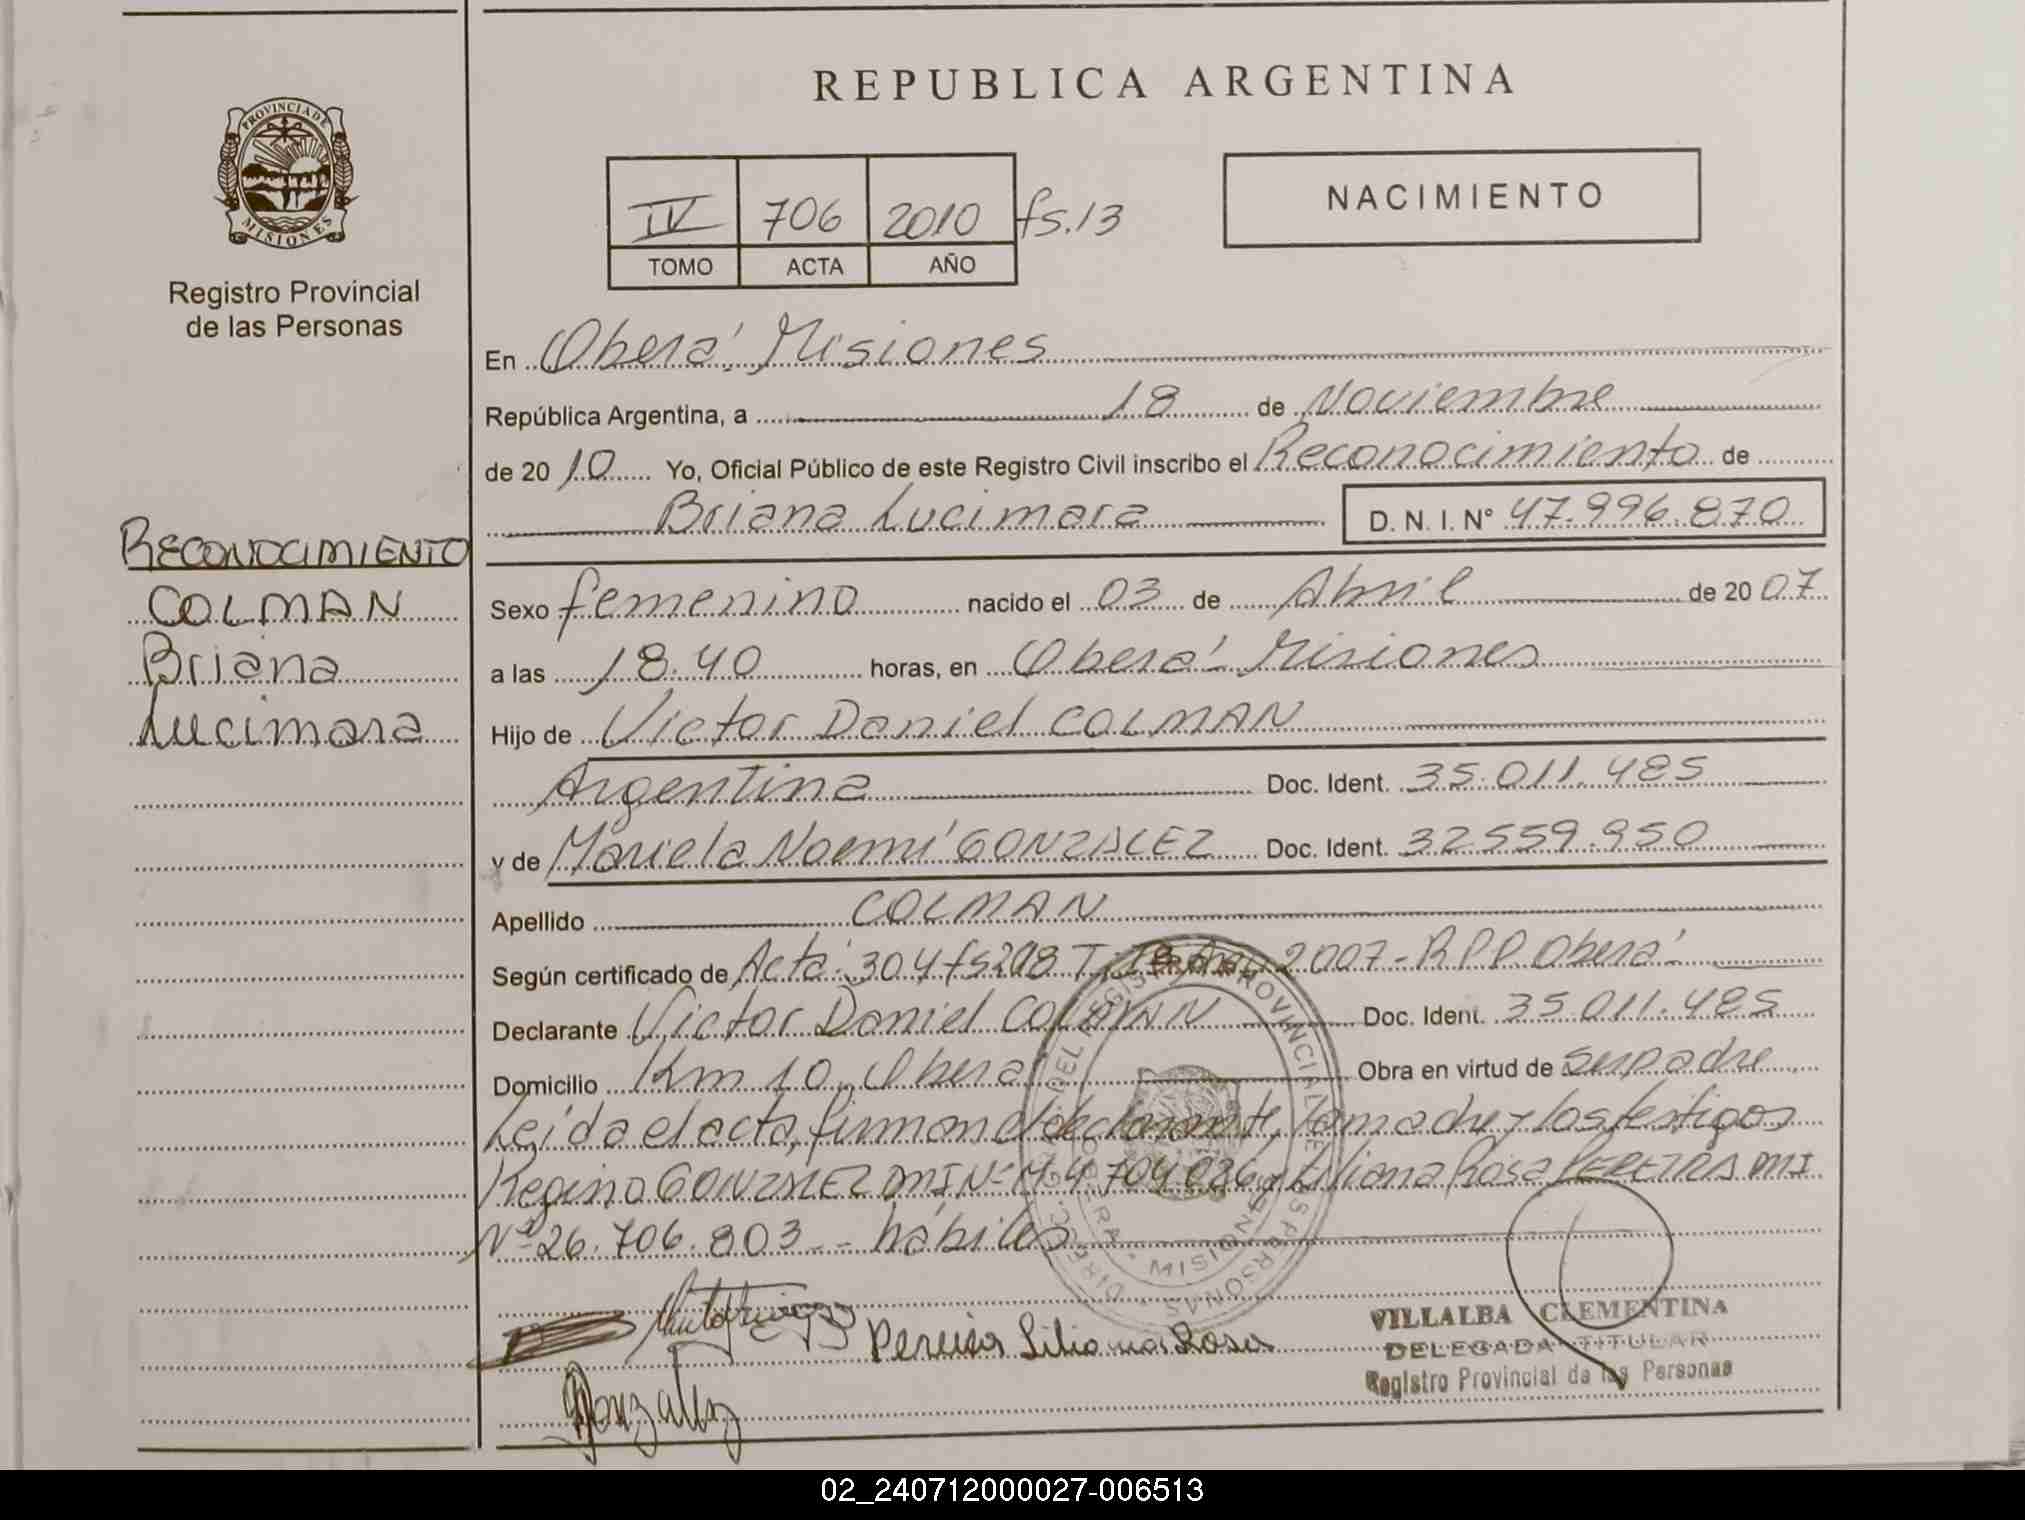 REPUBLICA ARGENTINA
PROVINCIA DE
MISIONES
Registro Provincial
de las Personas
IV 706 2010 fs.13
TOMO ACTA AÑO
NACIMIENTO
En Oberá Misiones
República Argentina, a 18 de Noviembre
de 2010 Yo, Oficial Público de este Registro Civil inscribo el Reconocimiento de
Briana Lucimara D.N.I.N° 47.996.870
RECONOCIMIENTO
COLMAN
Briana
Lucimara
Sexo femenino nacido el 03 de Abril de 2007
a las 18.40 horas, en Oberá Misiones
Hijo de Victor Daniel COLMAN
Argentina Doc. Ident. 35.011.485
y de Mariela Noemí GONZALEZ Doc. Ident. 32.559.950
Apellido COLMAN
Según certificado de Acta: 304 fs 298 T 2007 - RPP Oberá
Declarante Victor Daniel COLMAN Doc. Ident. 35.011.485
Domicilio Km 10, Oberá Obra en virtud de ser padre
Leída el acta, firman el declarante, la madre y los testigos
Regino GONZALEZ DMI N° M 4.704.026 y Liliana Rosa PEREIRA DMI
N° 26.706.803 - hábiles
Pereira Liliana Rosa
Gonzalez
VILLALBA CLEMENTINA
DELEGADA TITULAR
Registro Provincial de las Personas
02_240712000027-006513